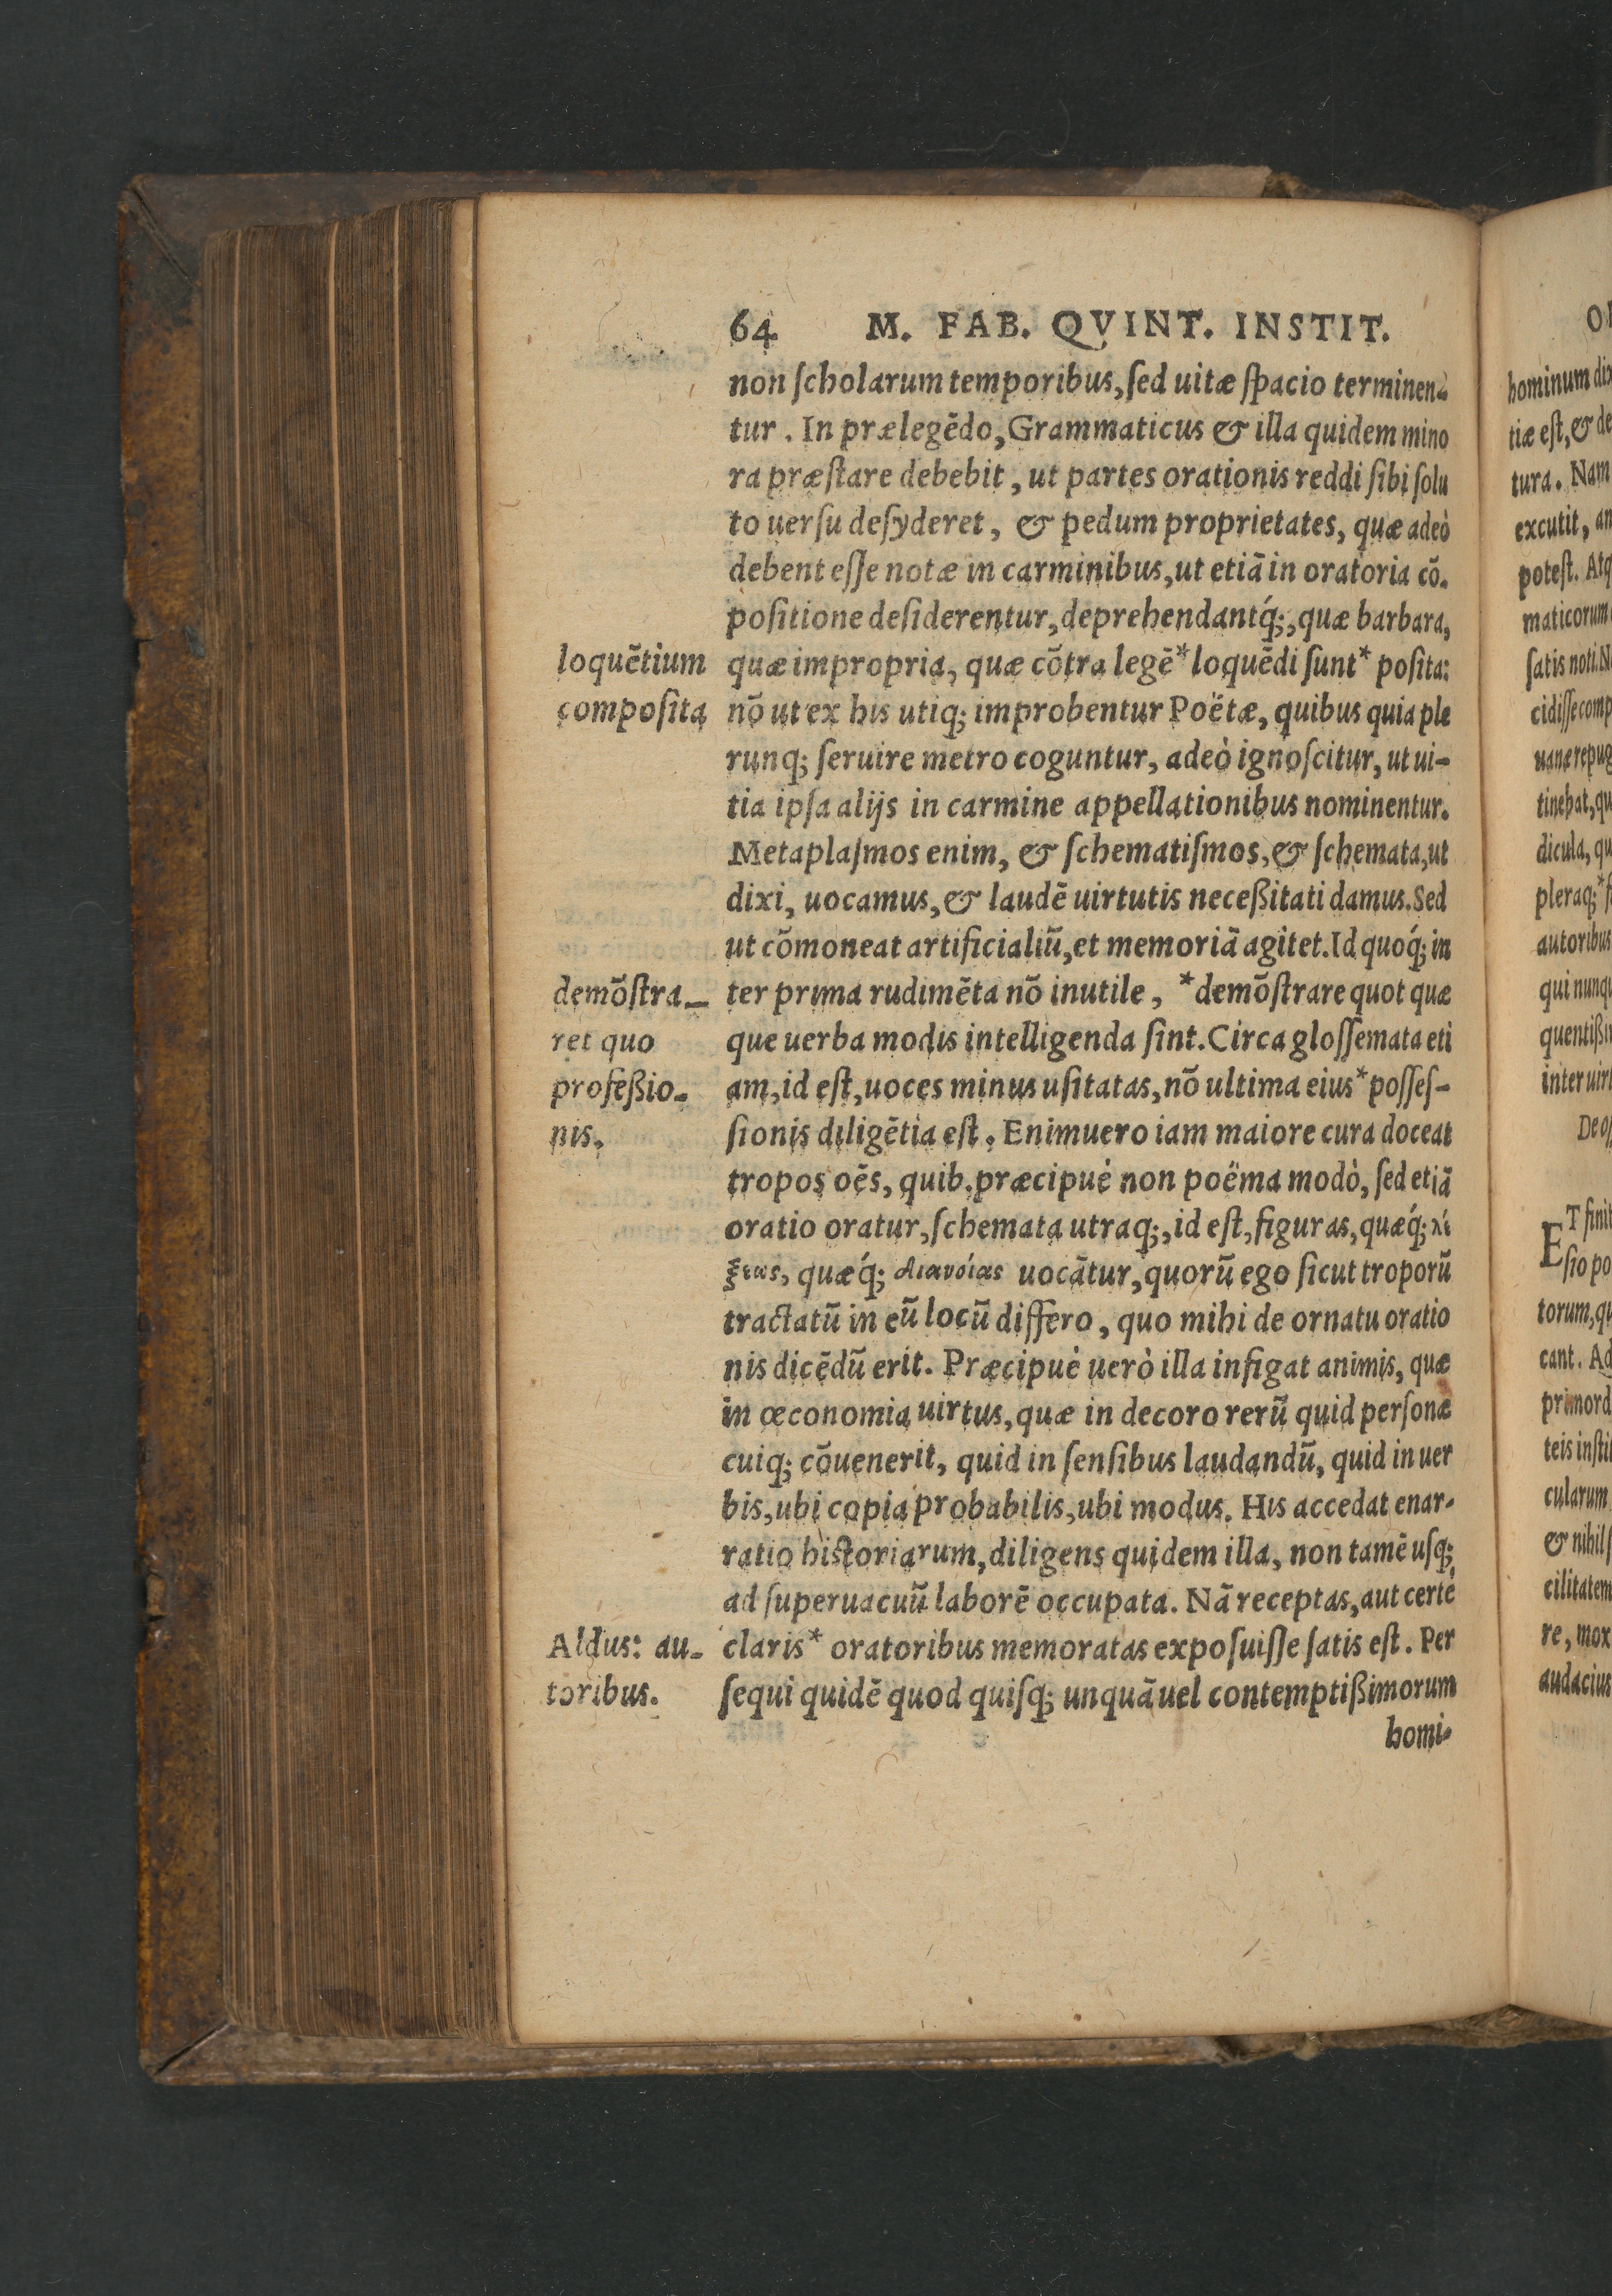 64 M. FAB. QVINT. INSTIT.
non ſcholarum temporibus, ſed uitæ ſpacio terminen-
tur. In prælegēdo, Grammaticus & illa quidem mino
ra præſtare debebit, ut partes orationis reddi ſibi ſolu
to uerſu deſyderet, & pedum proprietates, quæ adeò
debent eſſe notæ in carminibus, ut etiā in oratoria cō-
poſitione deſiderentur, deprehendantq́;, quæ barbara,
loquētium
quæ impropria, quæ cōtra legē* loquēdi ſunt* poſita:
compoſita
nō ut ex his utiq; improbentur Poëtæ, quibus quia ple
runq; ſeruire metro coguntur, adeò ignoſcitur, ut ui-
tia ipſa alijs in carmine appellationibus nominentur.
Metaplaſmos enim, & ſchematiſmos, & ſchemata, ut
dixi, uocamus, & laudē uirtutis neceßitati damus. Sed
ut cōmoneat artificialiū, et memoriā agitet. Id quoq́; in
demōſtra-
ter prima rudimēta nō inutile, *demōſtrare quot quæ
ret quo
que uerba modis intelligenda ſint. Circa gloſſemata eti
profeßio-
am, id eſt, uoces minus uſitatas, nō ultima eius* poſſeſ-
nis.
ſionis diligētia eſt. Enimuero iam maiore cura doceat
tropos oēs, quib. præcipuè non poëma modò, ſed etiā
oratio oratur, ſchemata utraq;, id eſt, figuras, quæq́; λέ
ξεως, quæq́; διανοίας uocātur, quorū ego ſicut troporū
tractatū in eū locū differo, quo mihi de ornatu oratio
nis dicēdū erit. Præcipuè uerò illa infigat animis, quæ
in œconomia uirtus, quæ in decoro rerū quid perſonæ
cuiq; cōuenerit, quid in ſenſibus laudandū, quid in uer
bis, ubi copia probabilis, ubi modus. His accedat enar-
ratio hiſtoriarum, diligens quidem illa, non tamē uſq;
ad ſuperuacuū laborē occupata. Nā receptas, aut certè
Aldus: au-
claris* oratoribus memoratas expoſuiſſe ſatis eſt. Per
toribus.
ſequi quidē quod quiſq; unquā uel contemptißimorum
homi-
hominum
tiæ eſt, & de
tura. Nam
excutit, an
poteſt. Atq
maticorum
ſatis noti. N
cidiſſe comp
uanæ repug
tinebat, qu
dicula, qu
pleraq;*
autoribus
qui nunqu
quentißi
inter uir
De
ET finit
ſio po
torum, qu
cant. Ad
primord
teis inſtit
cularum
& nihil
cilitatem
re, mox
audacius